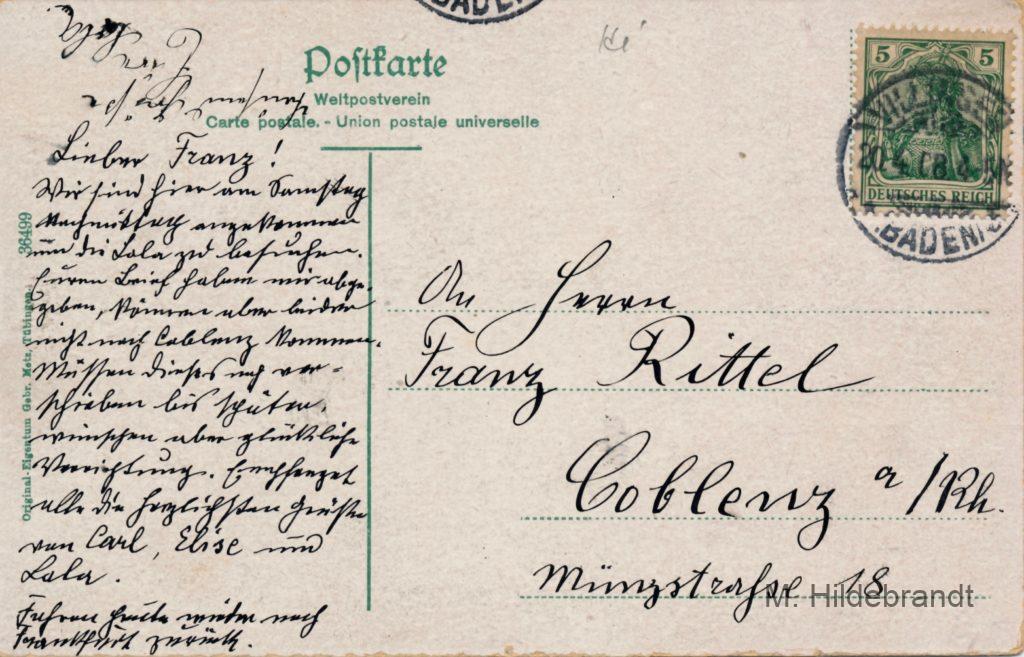 BADEN
Postkarte
Weltpostverein
Carte postale. - Union postale universelle
5 5
DEUTSCHES REICH
VILLINGEN
20.4.08.4-5N
(BADEN)
Lieber Franz!
Wir sind hier am Samstag
Nachmittag angekommen
um die Lola zu besuchen.
Euren Brief haben wir abge-
geben, können aber leider
nicht nach Coblenz kommen.
Müssen dieses noch ver-
schieben bis später,
wünschen aber glückliche
Verrichtung. Empfanget
alle die herzlichsten Grüße
von Carl, Elise und
Lola.
Fahren heute wieder nach
Frankfurt zurück.
An Herrn
Franz Rittel
Coblenz a/Rh.
Münzstraße 18
36499
Original-Eigentum Gebr. Metz, Tübingen.
M. Hildebrandt